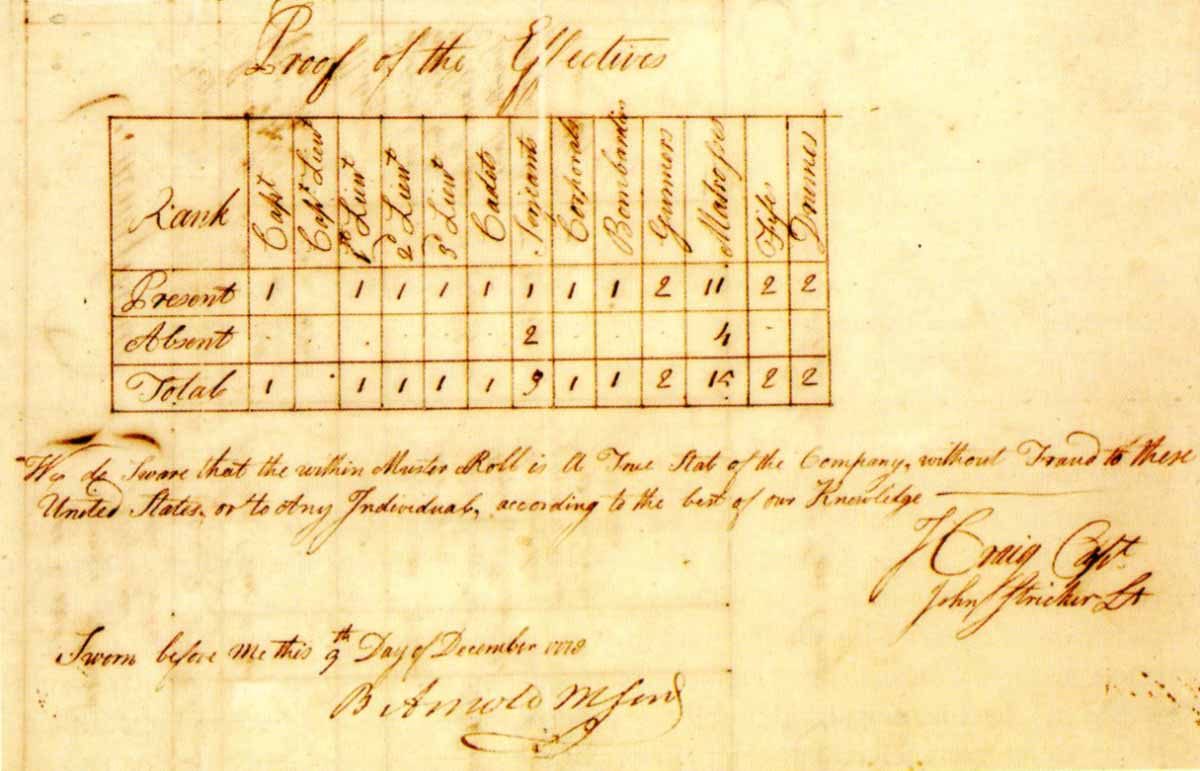 Proof of the Effectives
Rank Capt Capt Lieut 1st Lieut 2d Lieut 3d Lieut Cadets Serjeants Corporals Bombardiers Gunners Matrosses Fifes Drumes
Present 1 1 1 1 1 1 1 1 2 11 2 2
Absent 2 4
Total 1 1 1 1 1 3 1 1 2 15 2 2
We do Sware that the within Muster Roll is A True Stat of the Company, without Fraud to these
United States, or to Any Individual, according to the best of our Knowledge
J Craig Capt.
John Stricker Lt
Sworn before Me this 9th Day of December 1778
B Arnold M Genl